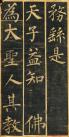 務繇是
天子益知佛
為大聖人其教